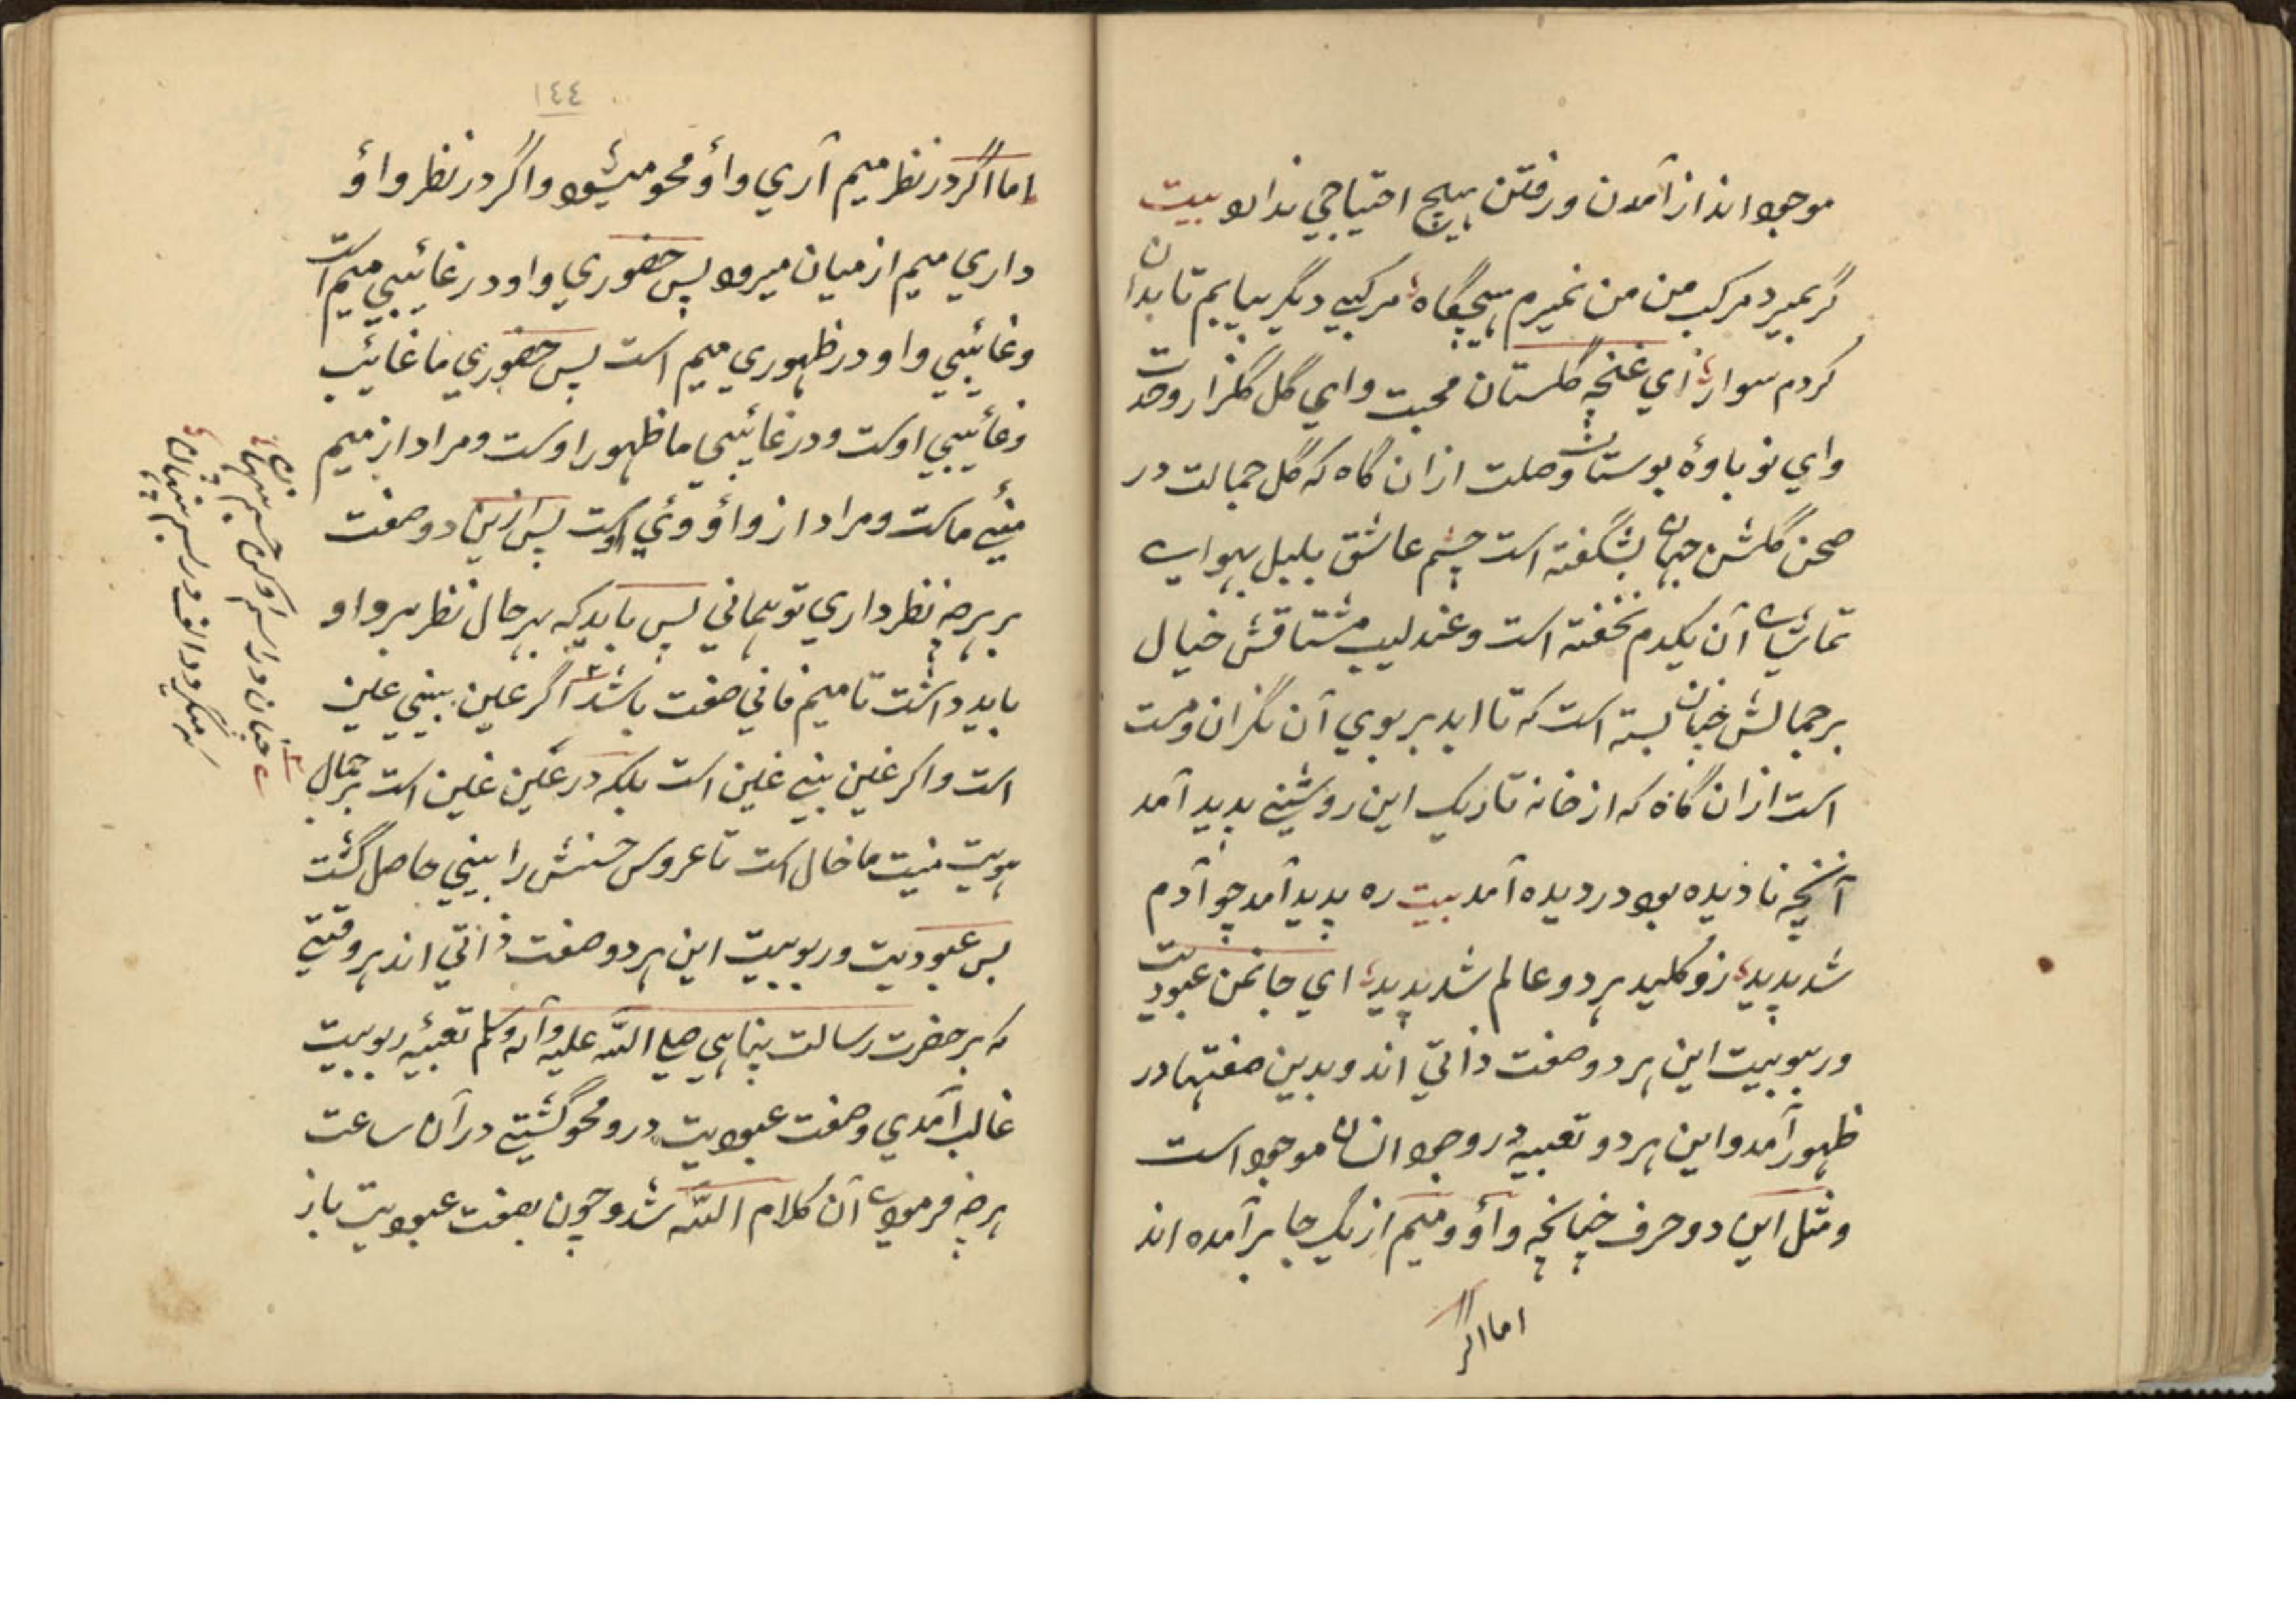 موجود اند از آمدن و رفتن هیچ احتیاجی ندارد بیت
گر بمیرد مرکب من من نمیرم هیچگاه مرکبی دیگر بیابم تا بدان
کردم سوار ای غنچه گلستان محبت و ای گل گلزار وحدت
و ای نوباوهٔ بوستان وصلت ازان گاه که گل جمالت در
صحن گلشن جهان بشگفته است چشم عاشق بلبل بهوای
تماشای آن یکدم نخفته است و عندلیب مشتاقش خیال
بر جمالش چنان بسته است که تا ابد بر بوی آن نگران و مست
است ازان گاه که از خانه تاریک این روشنی پدید آمد
آنچه نادیده بود در دیده آمد بیت ره پدید آمد چو آدم
شد پدید زو کلید هر دو عالم شد پدید ای جانمن عبودیت
و ربوبیت این هر دو صفت ذاتی اند و بدین صفتها در
ظهور آمد و این هر دو تعبیه در وجود انسان موجود است
و مثل این دو حرف چنانچه واؤ و میم از یک جا برآمده اند
اما اگر
١٤٤
اما اگر در نظر میم آری واؤ محو میشود و اگر در نظر واؤ
داری میم از میان میرود پس حضوری واو در غائیبی میم است
و غائیبی واو در ظهوری میم است پس حضوری ما غائیب
و غائیبی اوست و در غائیبی ما ظهور اوست و مراد از میم
منیٔ ماست و مراد از واؤ وئی اوست پس ازین دو صفت
بر هرچه نظر داری تو همانی پس باید که بهر حال نظر بر واو
باید داشت تا میم فانی صفت باشد اگر عین بینی عین
است و اگر غین بینی غین است بلکه در عین غین است بر جمال
هویت منیت ما خال است تا عروس حسنش را بینی حاصل گشت
پس عبودیت و ربوبیت این هر دو صفت ذاتی اند هر وقتی
که بر حضرت رسالت پناهی صلی الله علیه وآله وسلم تعبیٔه ربوبیت
غالب آمدی و صفت عبودیت درو محو گشتی در آن ساعت
هرچه فرمودی آن کلام الله شد و چون بصفت عبودیت باز